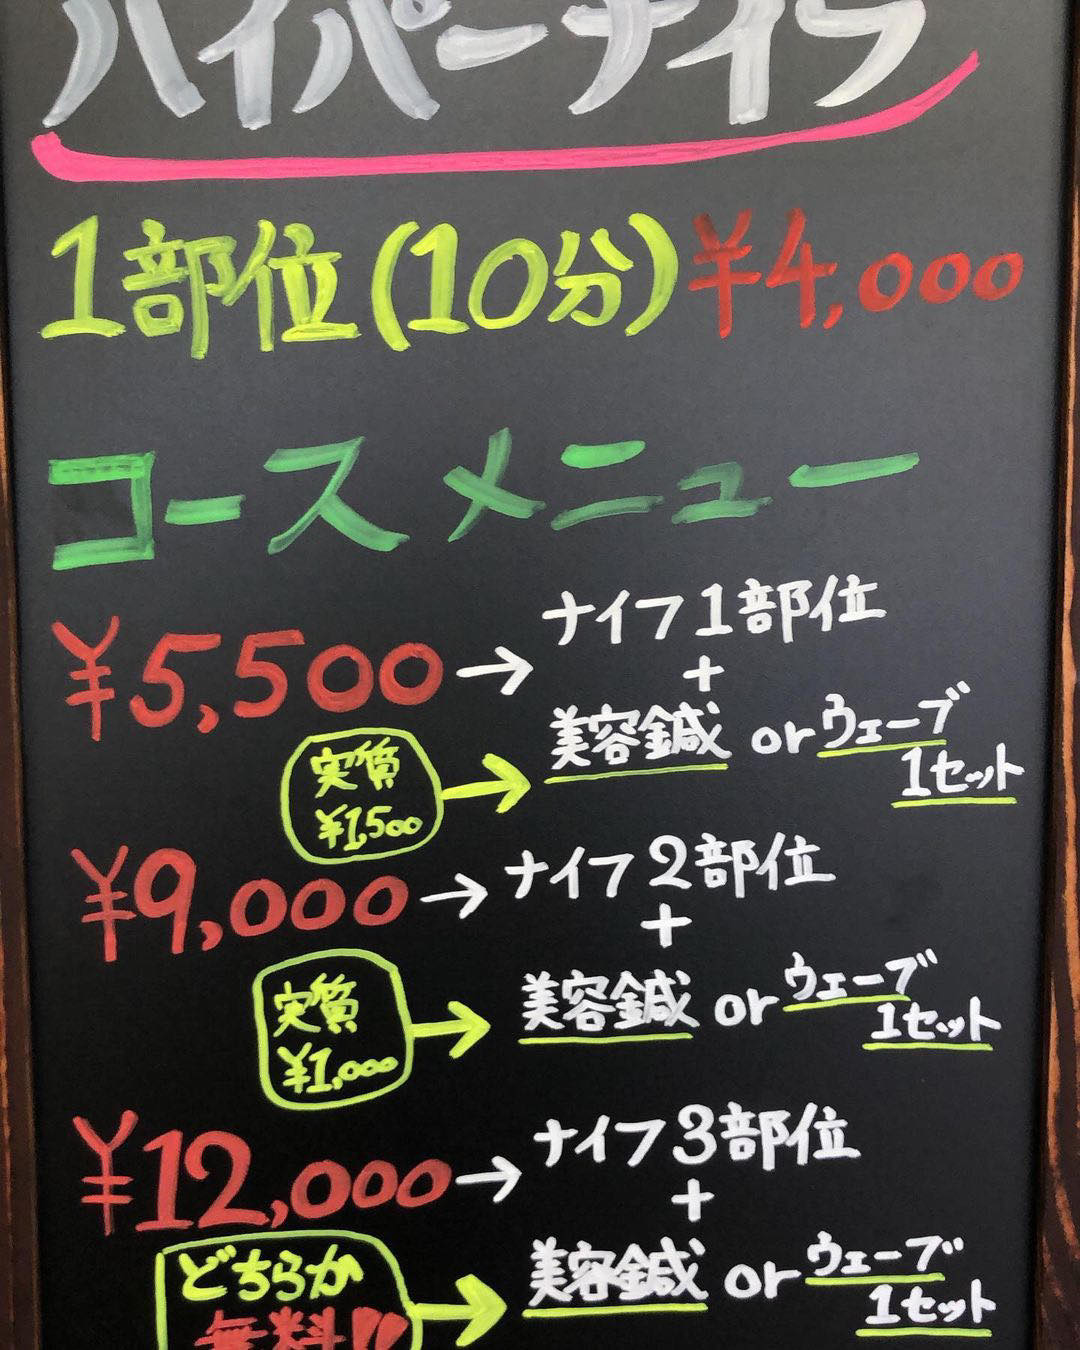 ハイパーナイフ
1部位(10分)¥4,000
コースメニュー
¥5,500→ナイフ1部位
+
実質
¥1,500
→美容鍼 or ウェーブ
1セット
¥9,000→ナイフ2部位
+
実質
¥1,000
→美容鍼 or ウェーブ
1セット
¥12,000→ナイフ3部位
+
どちらか
無料!!
→美容鍼 or ウェーブ
1セット